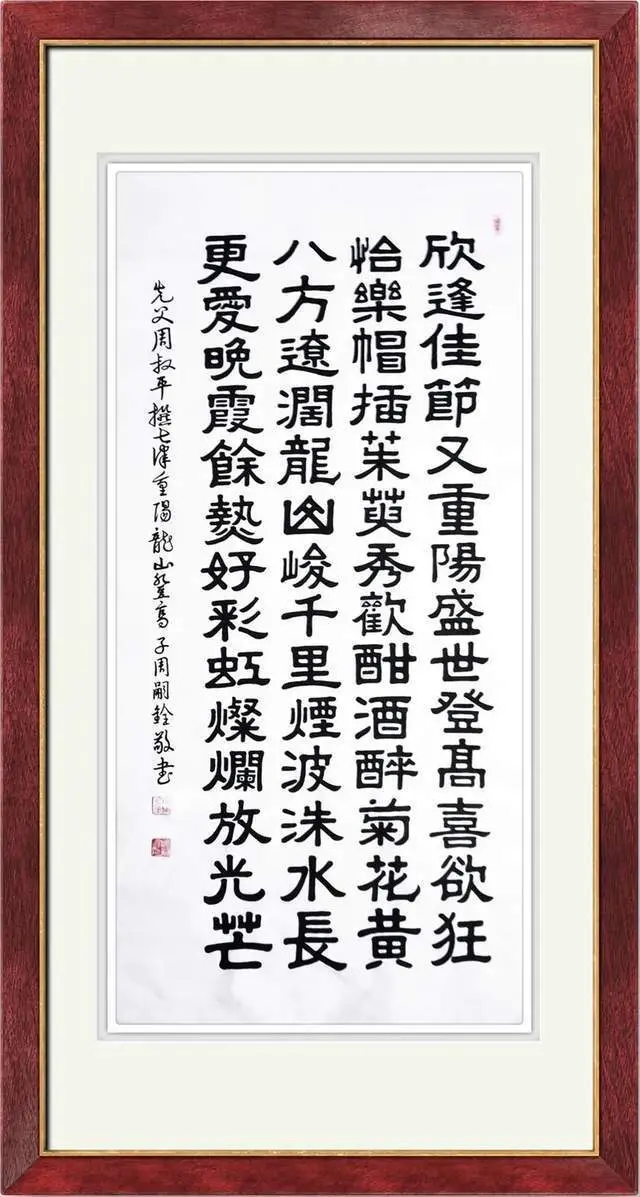 欣逢佳節又重陽盛世登髙喜欲狂
怡樂帽插茱萸秀歡酣酒醉菊花黃
八方遼濶龍山峻千里煙波洙水長
更愛晚霞餘熱好彩虹燦爛放光芒
先父周叔平撰七律重陽龍山登高子周嗣銓敬书